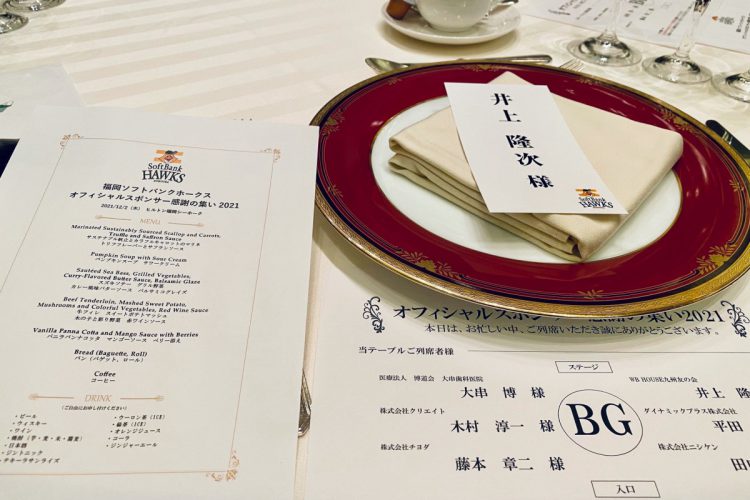 SoftBank
HAWKS
福岡ソフトバンクホークス
オフィシャルスポンサー感謝の集い 2021
2021/12/2（木） ヒルトン福岡シーホーク
MENU
Marinated Sustainably Sourced Scallop and Carrots,
Truffle and Saffron Sauce
サステナブル帆立とカラフルキャロットのマリネ
トリュフフレーバーとサフランソース
Pumpkin Soup with Sour Cream
パンプキンスープ サワークリーム
Sautéed Sea Bass, Grilled Vegetables,
Curry-Flavored Butter Sauce, Balsamic Glaze
スズキソテー グリル野菜
カレー風味バターソース バルサミコグレイズ
Beef Tenderloin, Mashed Sweet Potato,
Mushrooms and Colorful Vegetables, Red Wine Sauce
牛フィレ スイートポテトマッシュ
木の子と彩り野菜 赤ワインソース
Vanilla Panna Cotta and Mango Sauce with Berries
バニラパンナコッタ マンゴーソース ベリー添え
Bread (Baguette, Roll)
パン（バゲット、ロール）
Coffee
コーヒー
DRINK
（ご自由にお申し付けください）
・ビール
・ウィスキー
・ワイン
・焼酎（芋・麦・米・蕎麦）
・日本酒
・ジントニック
・テキーラサンライズ
・ウーロン茶（ICE）
・緑茶（ICE）
・オレンジジュース
・コーラ
・ジンジャーエール
井上 隆次 様
SoftBank
HAWKS
オフィシャルスポン
の集い2021
本日は、お忙しい中、ご列席いただき誠にありがとうございます。
当テーブルご列席者様
ステージ
医療法人 博道会 大串歯科医院
大串 博 様
株式会社クリエイト
木村 淳一 様
株式会社チヨダ
藤本 章二 様
BG
WB HOUSE九州友の会
井上 隆
ダイナミックプラス株式会社
平田
株式会社ニシケン
田
入口